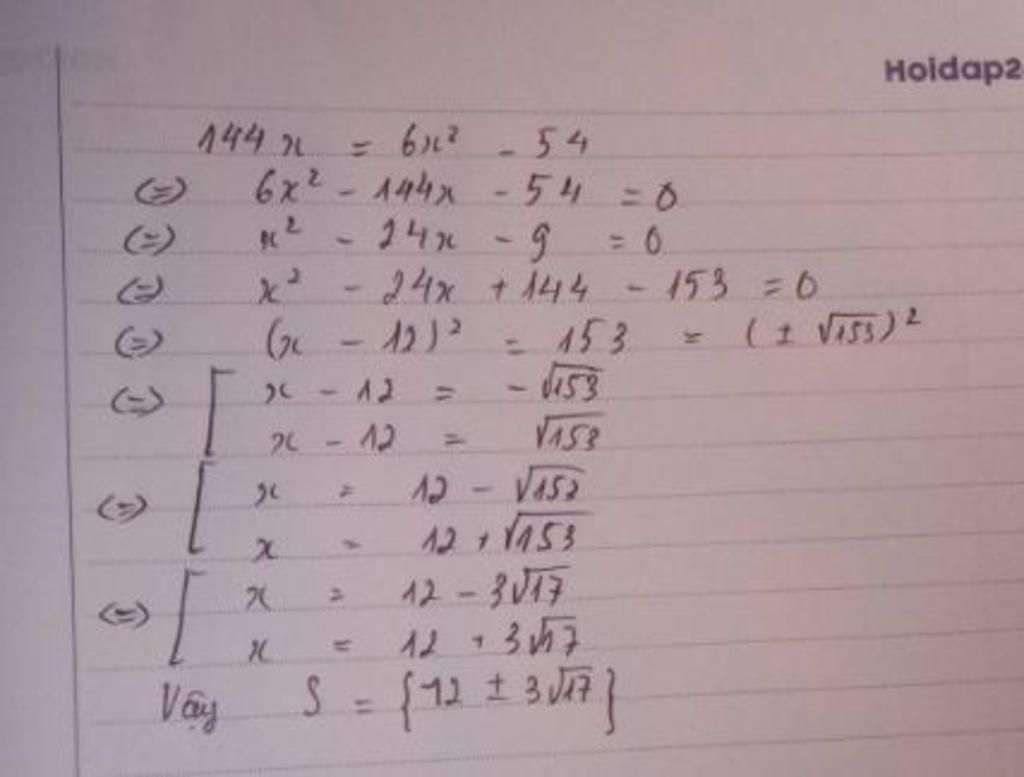 Hoidap2
144x = 6x² - 54
(=) 6x² - 144x - 54 = 0
(=) x² - 24x - 9 = 0
(=) x² - 24x + 144 - 153 = 0
(=) (x - 12)² = 153 = (± √153)²
(=) [ x - 12 = - √153
x - 12 = √153
(=) [ x = 12 - √153
x = 12 + √153
(=) [ x = 12 - 3√17
x = 12 + 3√17
Vậy S = {12 ± 3√17}